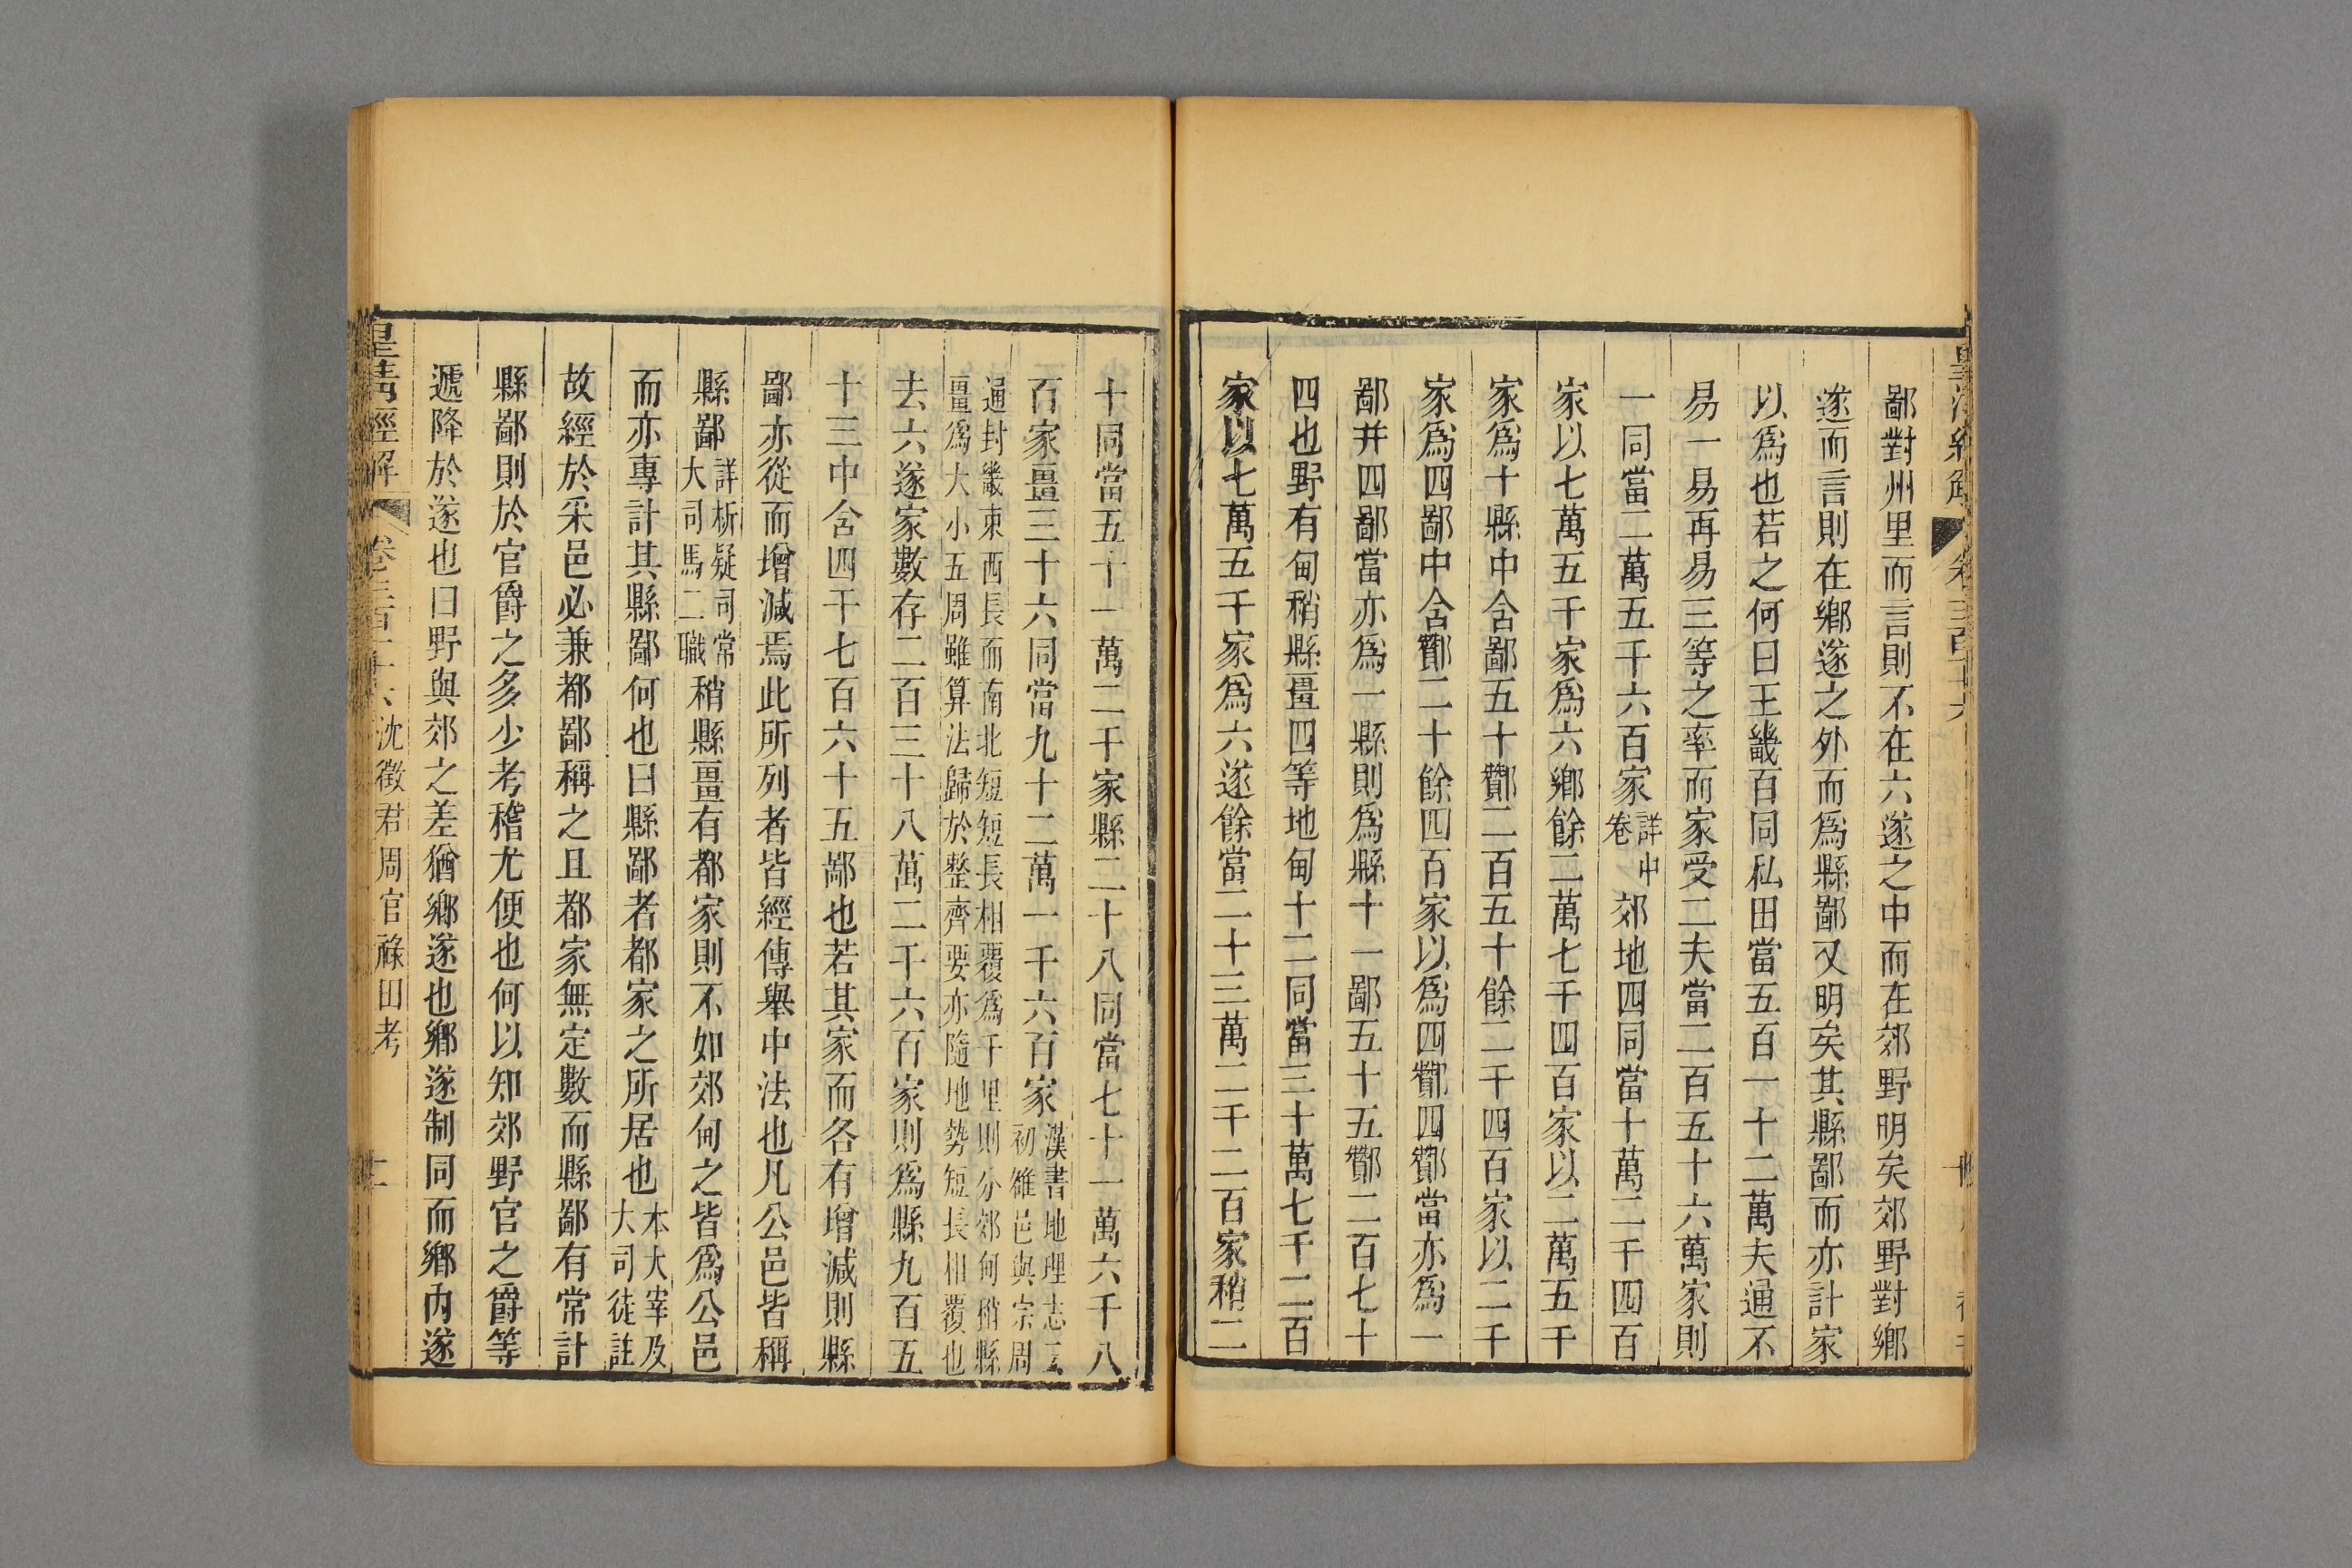 鄙對州里而言則不在六遂之中而在郊野明矣郊野對鄉
遂而言則在鄉遂之外而爲縣鄙又明矣其縣鄙而亦計家
以爲也若之何曰王畿百同私田當五百一十二萬夫通不
易一易再易三等之率而家受二夫當二百五十六萬家則
一同當二萬五千六百家詳中卷郊地四同當十萬二千四百
家以七萬五千家爲六鄉餘二萬七千四百家以二萬五千
家爲十縣中含鄙五十酇二百五十餘二千四百家以二千
家爲四鄙中含酇二十餘四百家以爲四酇四酇當亦爲一
鄙并四鄙當亦爲一縣則爲縣十一鄙五十五酇二百七十
四也野有甸稍縣畺四等地甸十二同當三十萬七千二百
家以七萬五千家爲六遂餘當二十三萬二千二百家稍二
十同當五十一萬二千家縣二十八同當七十一萬六千八
百家畺三十六同當九十二萬一千六百家漢書地理志云初雒邑與宗周
通封畿東西長而南北短短長相覆爲千里則分郊甸稍縣
畺爲大小五周雖算法歸於整齊要亦隨地勢短長相覆也
去六遂家數存二百三十八萬二千六百家則爲縣九百五
十三中含四千七百六十五鄙也若其家而各有增減則縣
鄙亦從而增減焉此所列者皆經傳舉中法也凡公邑皆稱
縣鄙詳析疑司常大司馬二職稍縣畺有都家則不如郊甸之皆爲公邑
而亦專計其縣鄙何也曰縣鄙者都家之所居也本大宰及大司徒註
故經於采邑必兼都鄙稱之且都家無定數而縣鄙有常計
縣鄙則於官爵之多少考稽尤便也何以知郊野官之爵等
遞降於遂也曰野與郊之差猶鄉遂也鄉遂制同而鄉內遂
皇清經解 卷三百十六 沈徵君周官祿田考